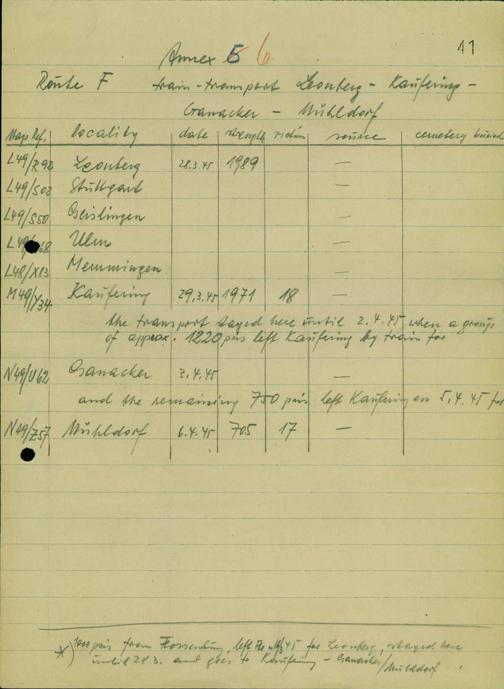 41
Annex 5 6
Route F train-transport Leonberg - Kaufering -
Ganacker - Mühldorf
Map Ref. locality date strength victims source cemetery burial
L49/R92 Leonberg 28.3.45 1989 —
L49/S02 Stuttgart —
L49/S50 Geislingen —
L49/ 68 Ulm —
L48/X83 Memmingen —
M49/Y34 Kaufering 29.3.45 1971 18 —
the transport stayed here until 2.4.45 when a group
of approx. 1220 pris left Kaufering by train for
N49/U62 Ganacker 3.4.45 —
and the remaining 750 pris left Kaufering on 5.4.45 for
N49/Z57 Mühldorf 6.4.45 705 17 —
*) 1000 pris from Flossenbürg, left Flo. 45 for Leonberg, stayed here
until 28.3. and goes to Kaufering - Ganacker/Mühldorf